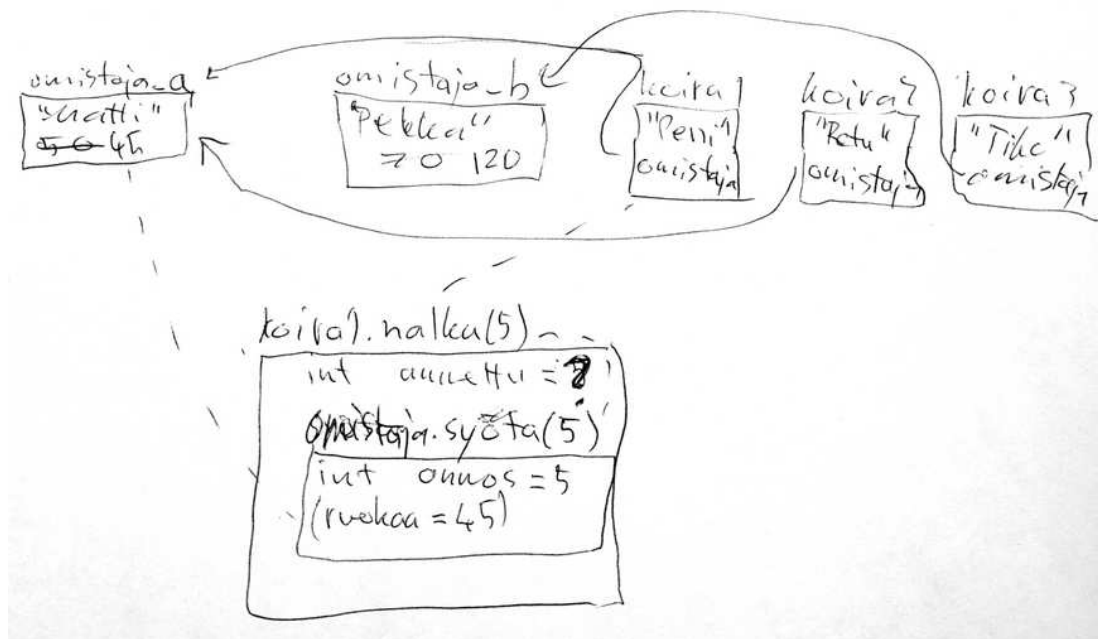 omistaja_a
"Matti"
50 45
omistaja_b
"Pekka"
70 120
koira1
"Peni"
omistaja
koira2
"Retu"
omistaja
koira3
"Tike"
omistaja
koira1.nalka(5)
int annettu =
omistaja.syöta(5)
int annos = 5
(ruokaa = 45)